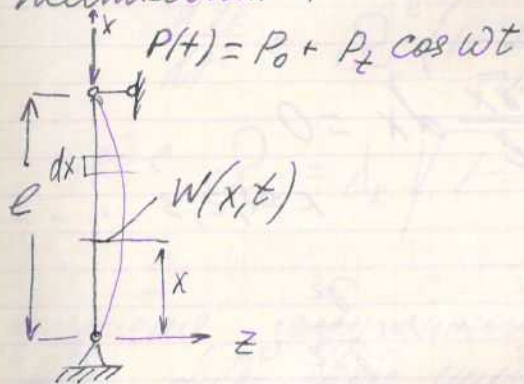 x
P(t) = P₀ + P_t cos ωt
dx
l
W(x,t)
x
z